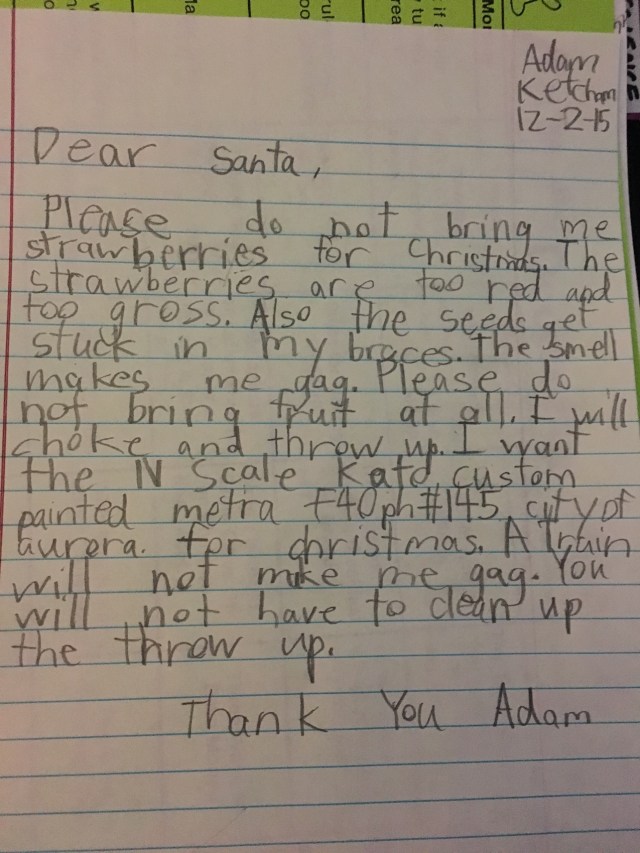 Adam
Ketcham
12-2-15
Dear Santa,
Please do not bring me
strawberries for Christmas. The
strawberries are too red and
too gross. Also the seeds get
stuck in my braces. The smell
makes me gag. Please do
not bring fruit at all. I will
choke and throw up. I want
the N Scale Kato custom
painted metra f40ph#145 city of
aurora. for christmas. A train
will not make me gag. You
will not have to clean up
the throw up.
Thank You Adam